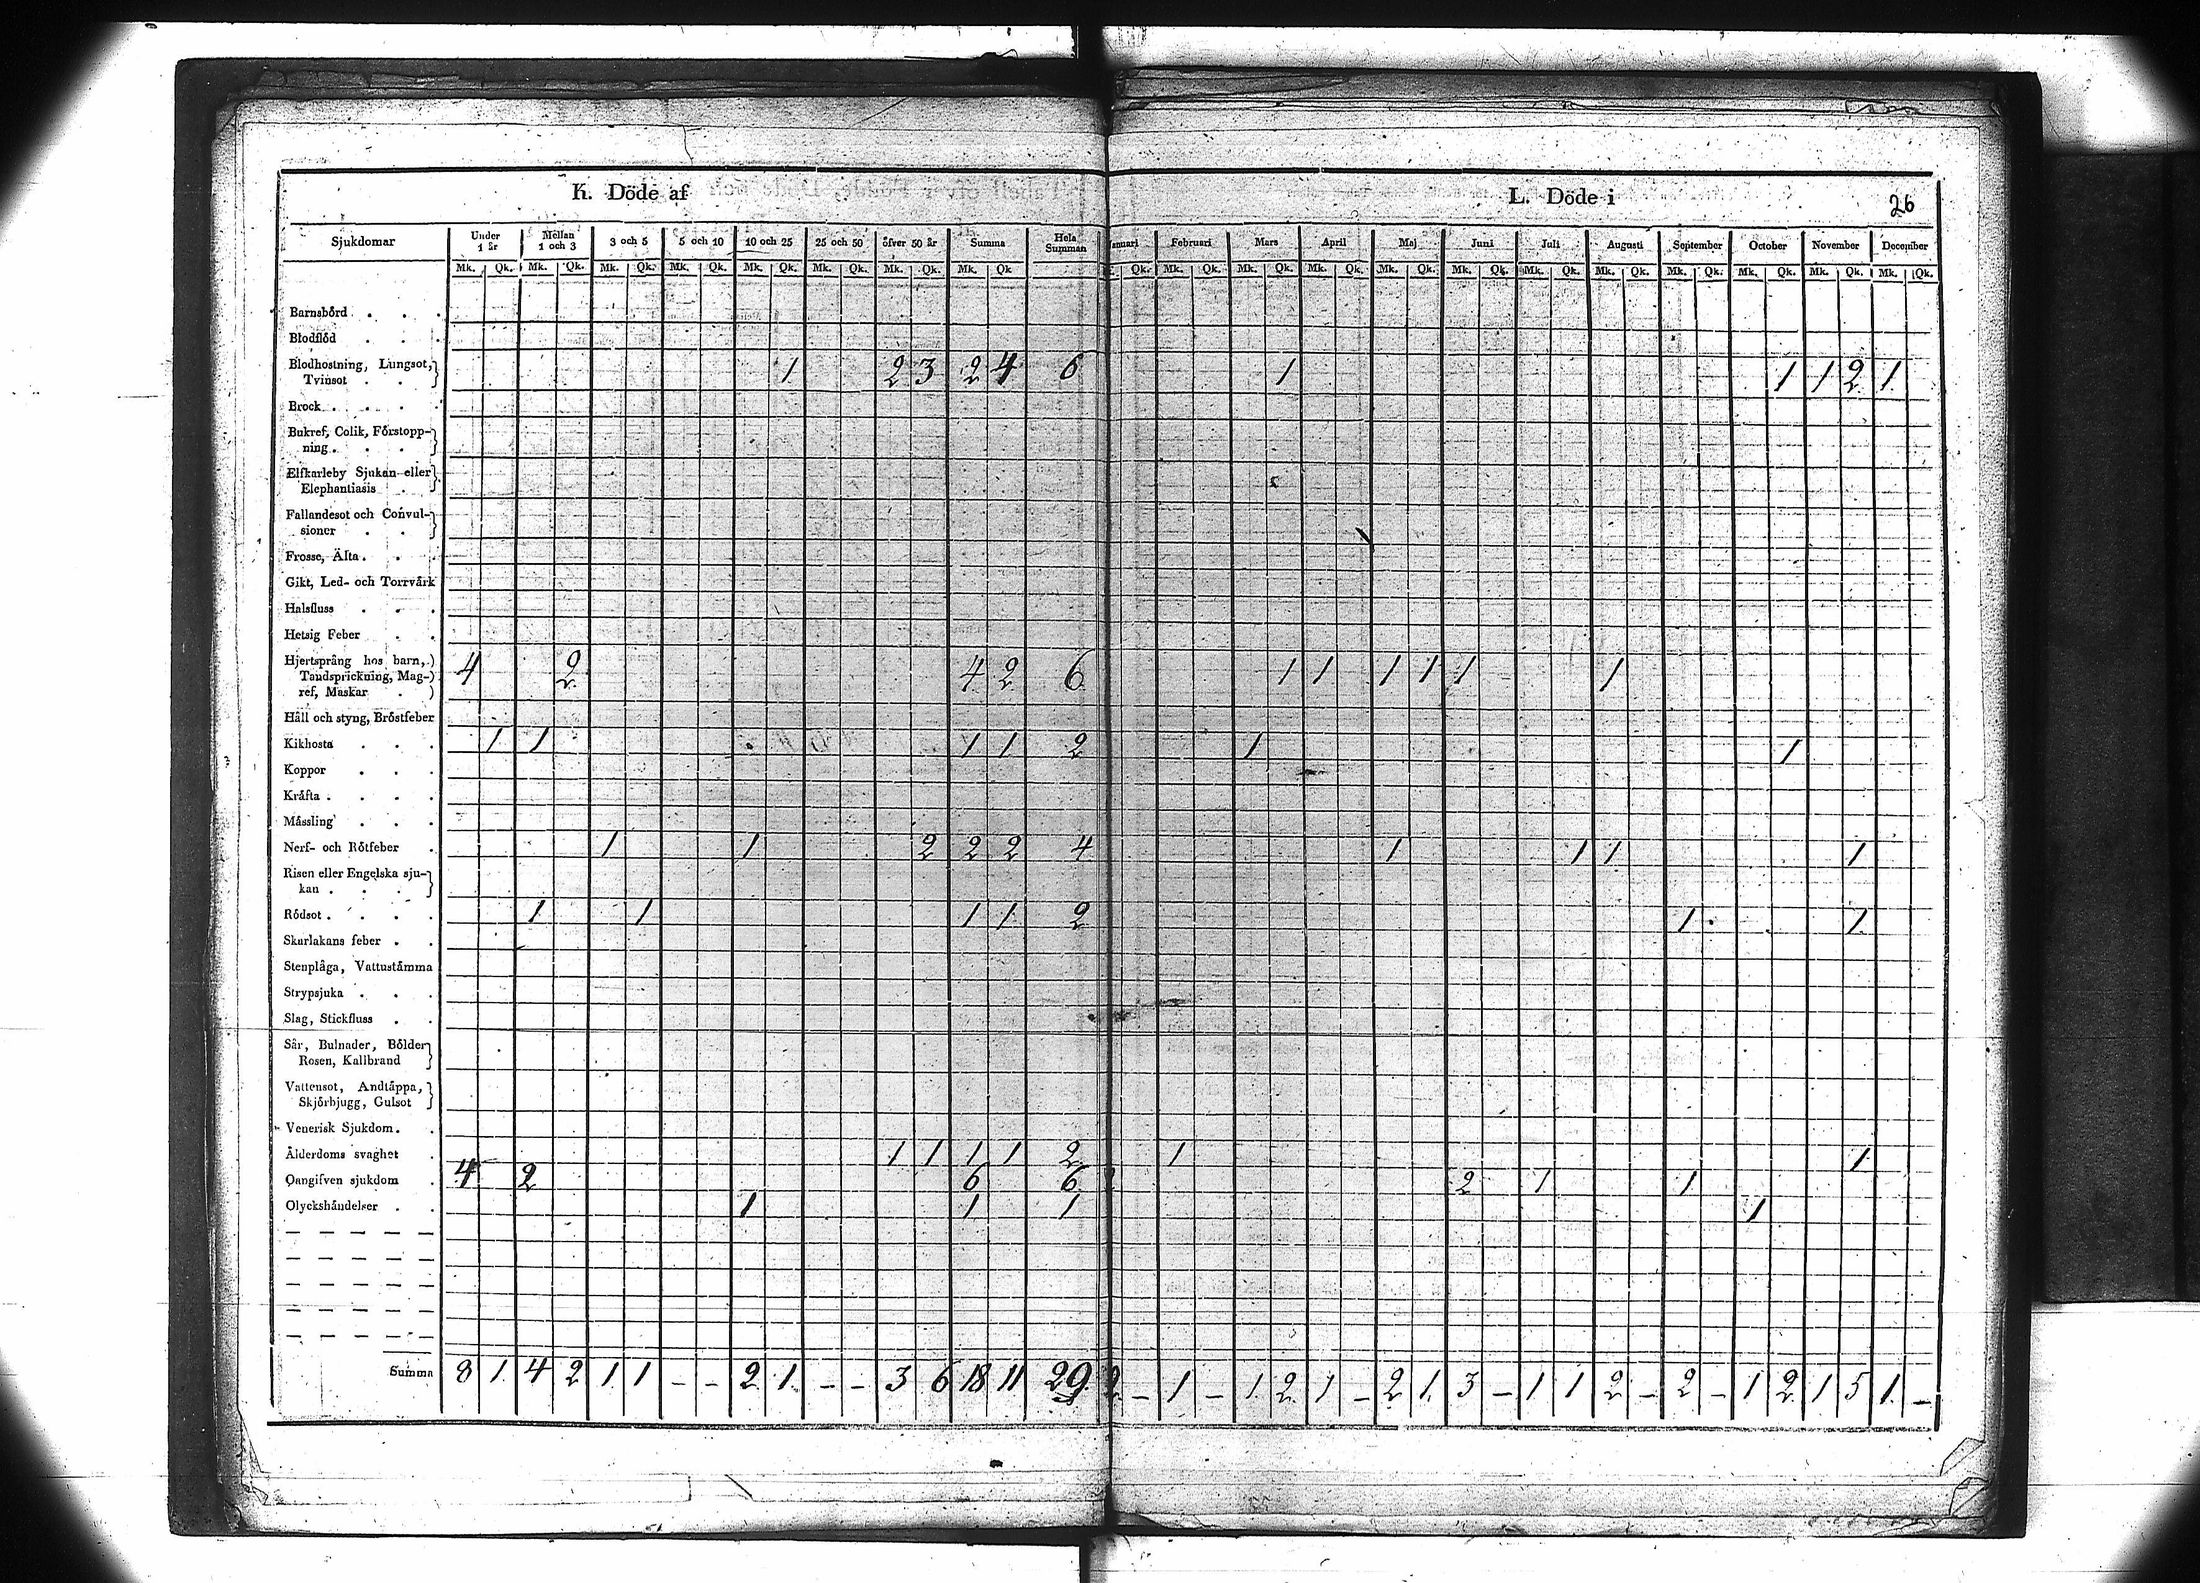 K. Döde af
L. Döde i
26
Sjukdomar Under 1 år Mellan 1 och 3 3 och 5 5 och 10 10 och 25 25 och 50 öfver 50 år Summa Hela Summan Januari Februari Mars April Maj Juni Juli Augusti September October November December
Mk. Qk. Mk. Qk. Mk. Qk. Mk. Qk. Mk. Qk. Mk. Qk. Mk. Qk. Mk. Qk Qk. Mk. Qk. Mk. Qk. Mk. Qk. Mk. Qk. Mk. Qk. Mk. Qk. Mk. Qk. Mk. Qk. Mk. Qk. Mk. Qk. Mk. Qk.
Barnsbörd . . .
Blodflöd . . .
Blodhostning, Lungsot,
Tvinsot . . 1 2 3 2 4 6 1 1 1 2 1
Brock . . . .
Bukref, Colik, Förstopp-
ning . . .
Elfkarleby Sjukan eller
Elephantiasis .
Fallandesot och Convul-
sioner . .
Frosse, Älta . . .
Gikt, Led- och Torrvärk
Halsfluss . . .
Hetsig Feber . .
Hjertsprång hos barn,
Tandsprickning, Mag- 4 2 4 2 6 1 1 1 1 1 1
ref, Maskar .
Håll och styng, Bröstfeber
Kikhosta . . . 1 1 1 1 2 1 1
Koppor . . .
Kräfta . . . .
Mässling . . .
Nerf- och Rötfeber . 1 1 2 2 2 4 1 1 1 1
Risen eller Engelska sju-
kan . . .
Rödsot . . . . 1 1 1 1 2 1 1
Skarlakans feber . .
Stenplåga, Vattustämma
Strypsjuka . . .
Slag, Stickfluss . .
Sår, Bulnader, Bölder
Rosen, Kallbrand
Vattensot, Andtäppa,
Skjörbjugg, Gulsot
Venerisk Sjukdom . .
Ålderdoms svaghet . 1 1 1 1 2 1 1
Oangifven sjukdom . 4 2 6 6 2 1 1
Olyckshändelser . . 1 1 1 1
Summa 8 1 4 2 1 1 - - 2 1 - - 3 6 18 11 29 2 - 1 - 1 2 1 - 2 1 3 - 1 1 2 - 2 - 1 2 1 5 1 -